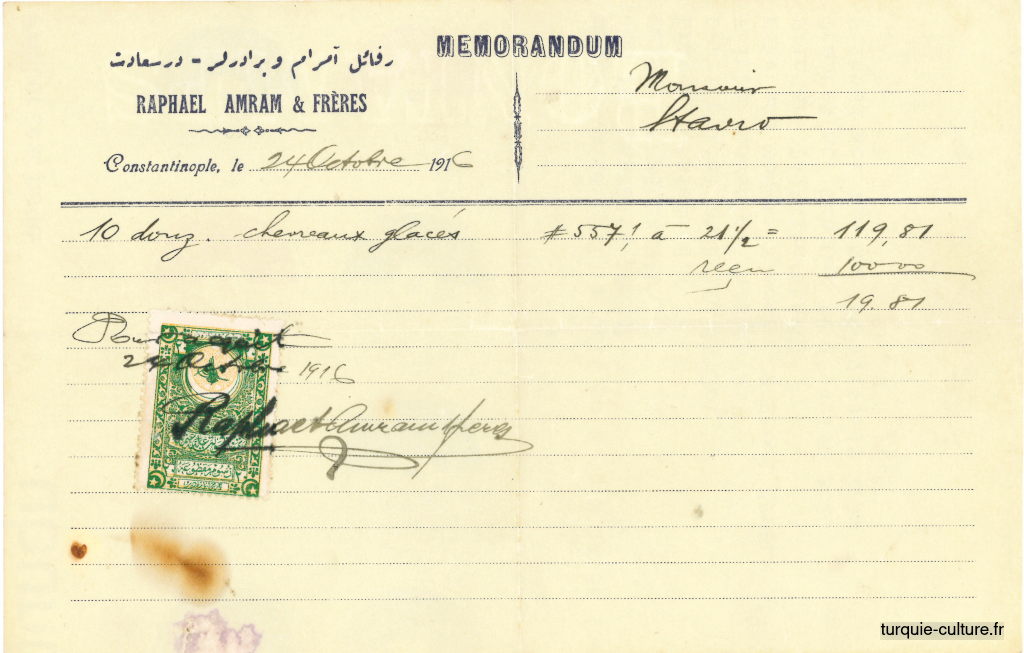 MEMORANDUM
رفائل آمرام و برادرلر - درسعادت
RAPHAEL AMRAM & FRÈRES
Monsieur
Stavro
Constantinople, le 24 Octobre 1916
10 douz. chevreaux glacés # 557 à 21 1/2 = 119,81
reçu 100 00
19.81
Pour acquit
24 Octobre 1916
Raphael Amram freres
turquie-culture.fr